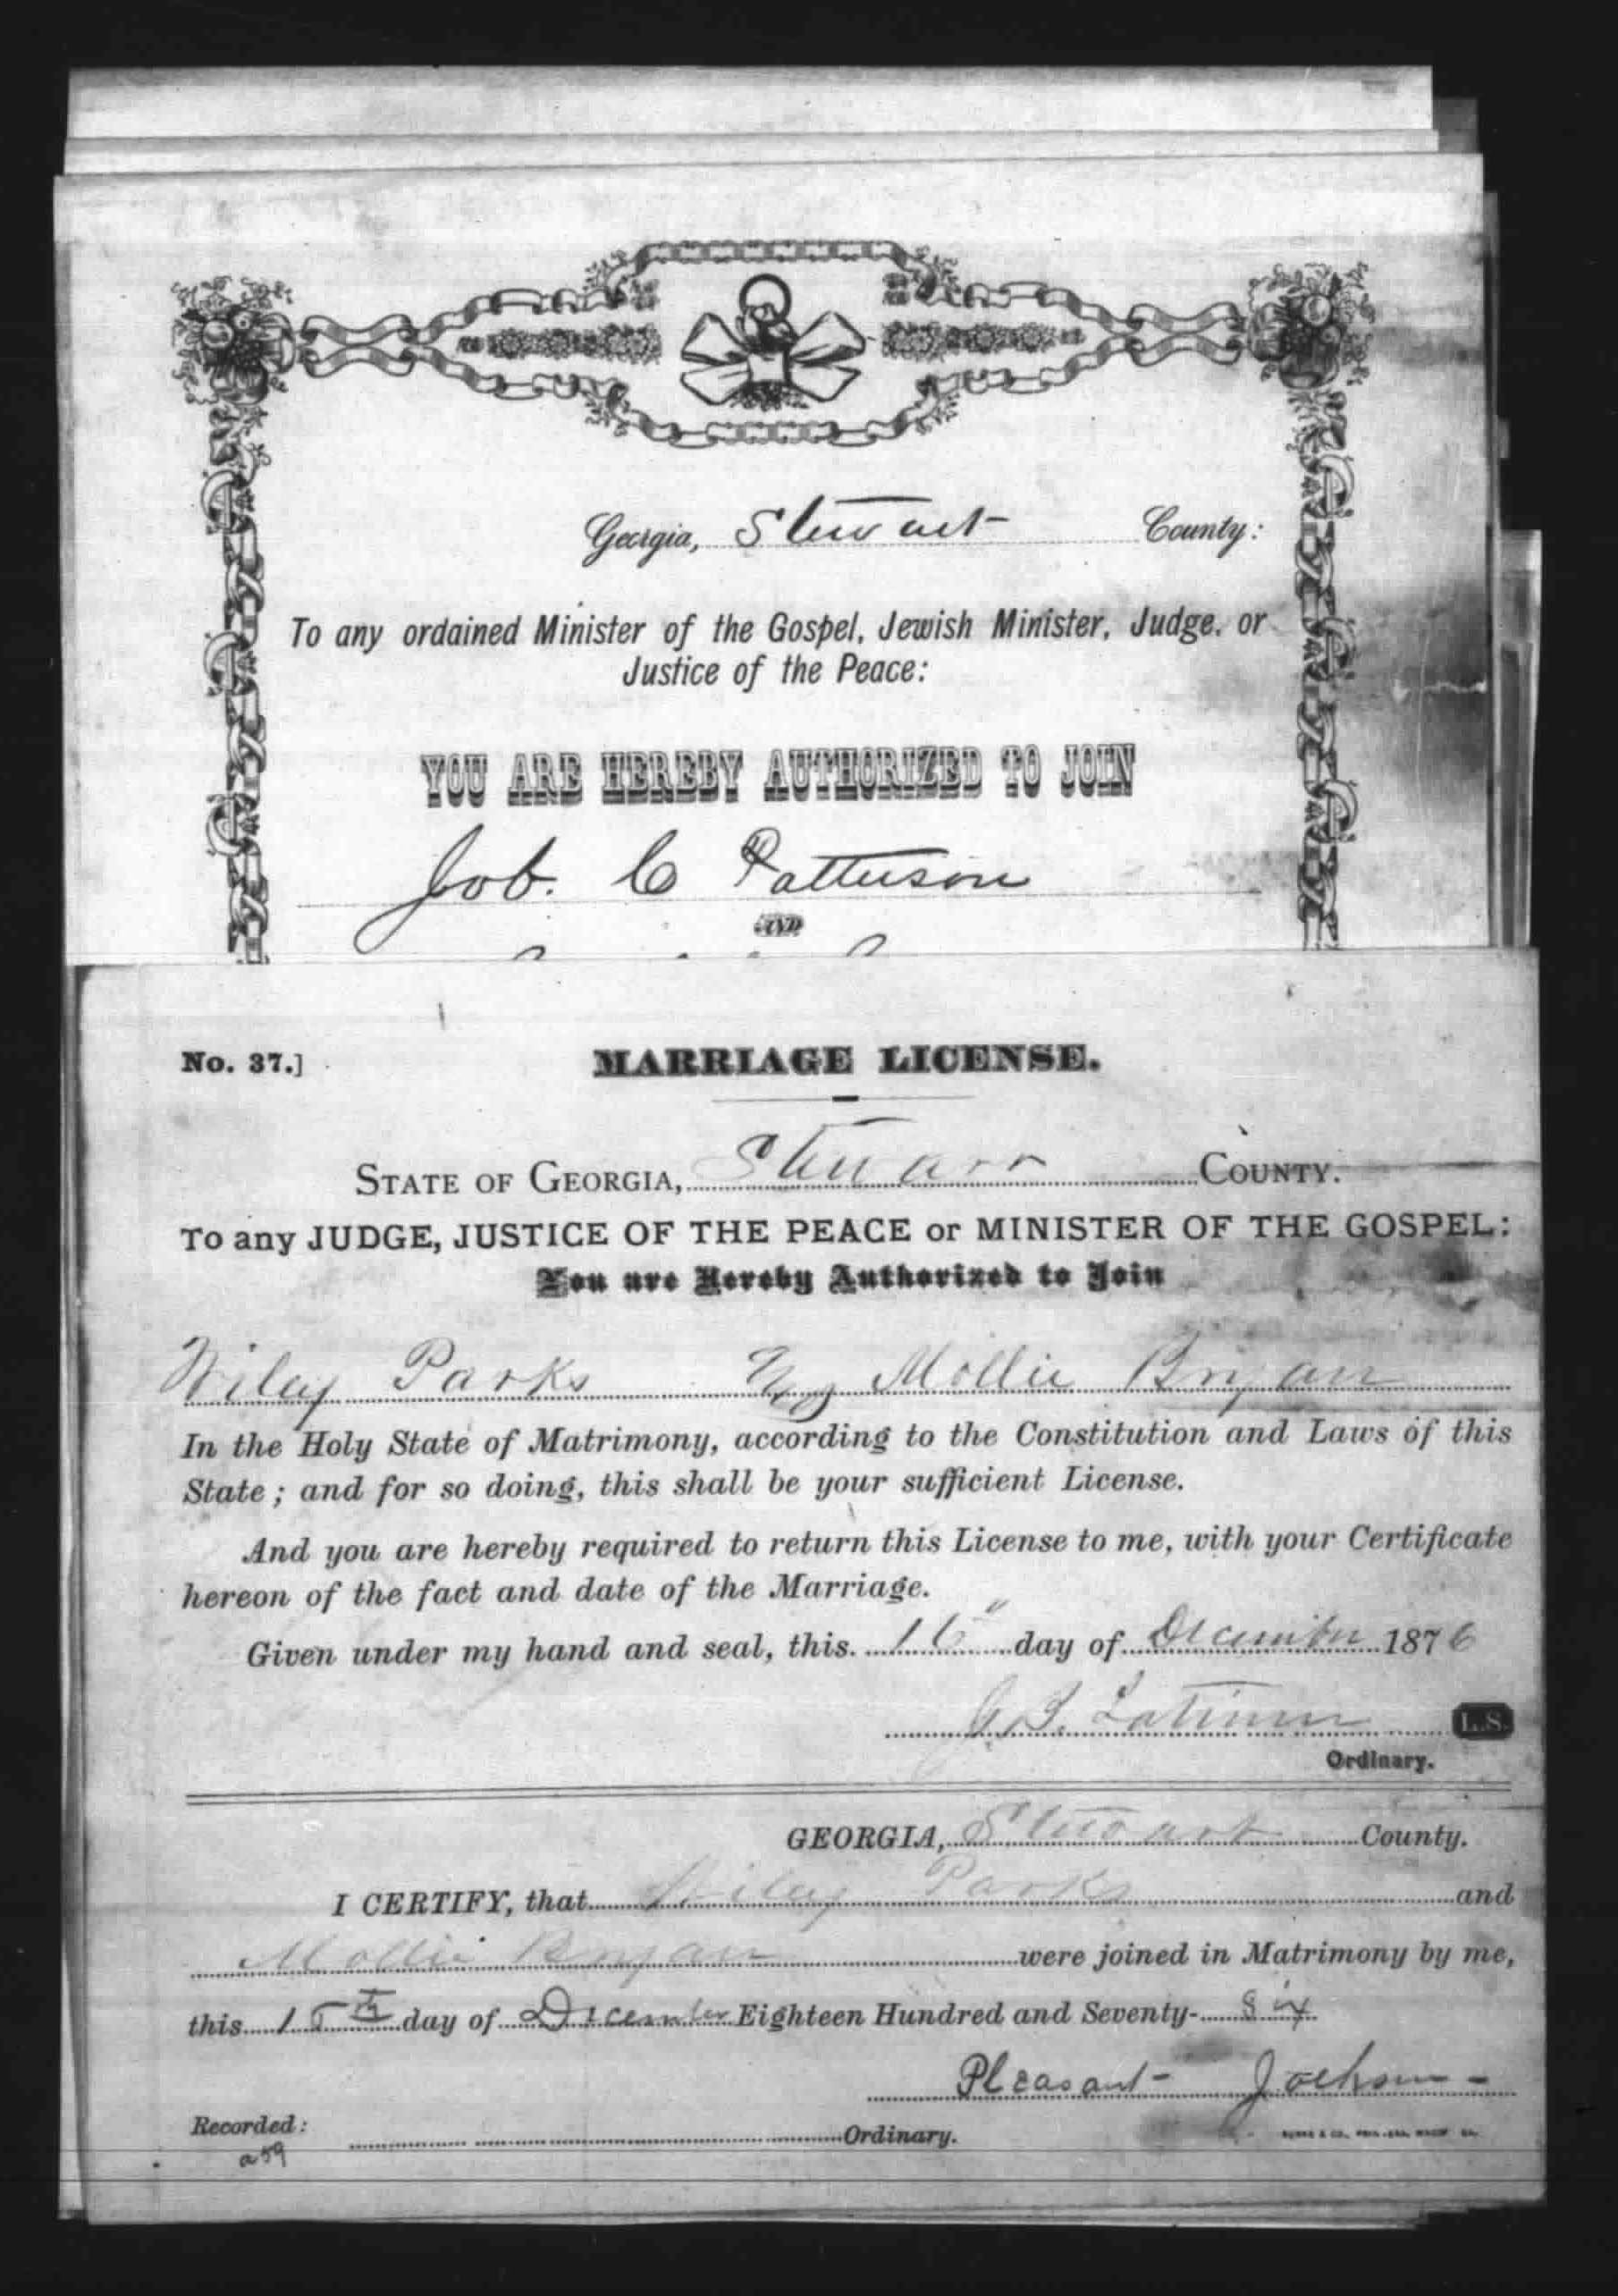 Georgia, Stewart County:
To any ordained Minister of the Gospel, Jewish Minister, Judge, or
Justice of the Peace:
YOU ARE HEREBY AUTHORIZED TO JOIN
Job. C Patterson
AND
No. 37.] MARRIAGE LICENSE.
STATE OF GEORGIA, Stewart COUNTY.
To any JUDGE, JUSTICE OF THE PEACE or MINISTER OF THE GOSPEL:
You are Hereby Authorized to Join
Wiley Parks & Mollie Bryan
In the Holy State of Matrimony, according to the Constitution and Laws of this
State; and for so doing, this shall be your sufficient License.
And you are hereby required to return this License to me, with your Certificate
hereon of the fact and date of the Marriage.
Given under my hand and seal, this. day of December 1876
Latimer L.S.
Ordinary.
GEORGIA, Stewart County.
I CERTIFY, that Wiley Parks and
Mollie Bryan were joined in Matrimony by me,
this 15th day of December Eighteen Hundred and Seventy- six
Pleasant Jackson
Recorded: Ordinary.
a59